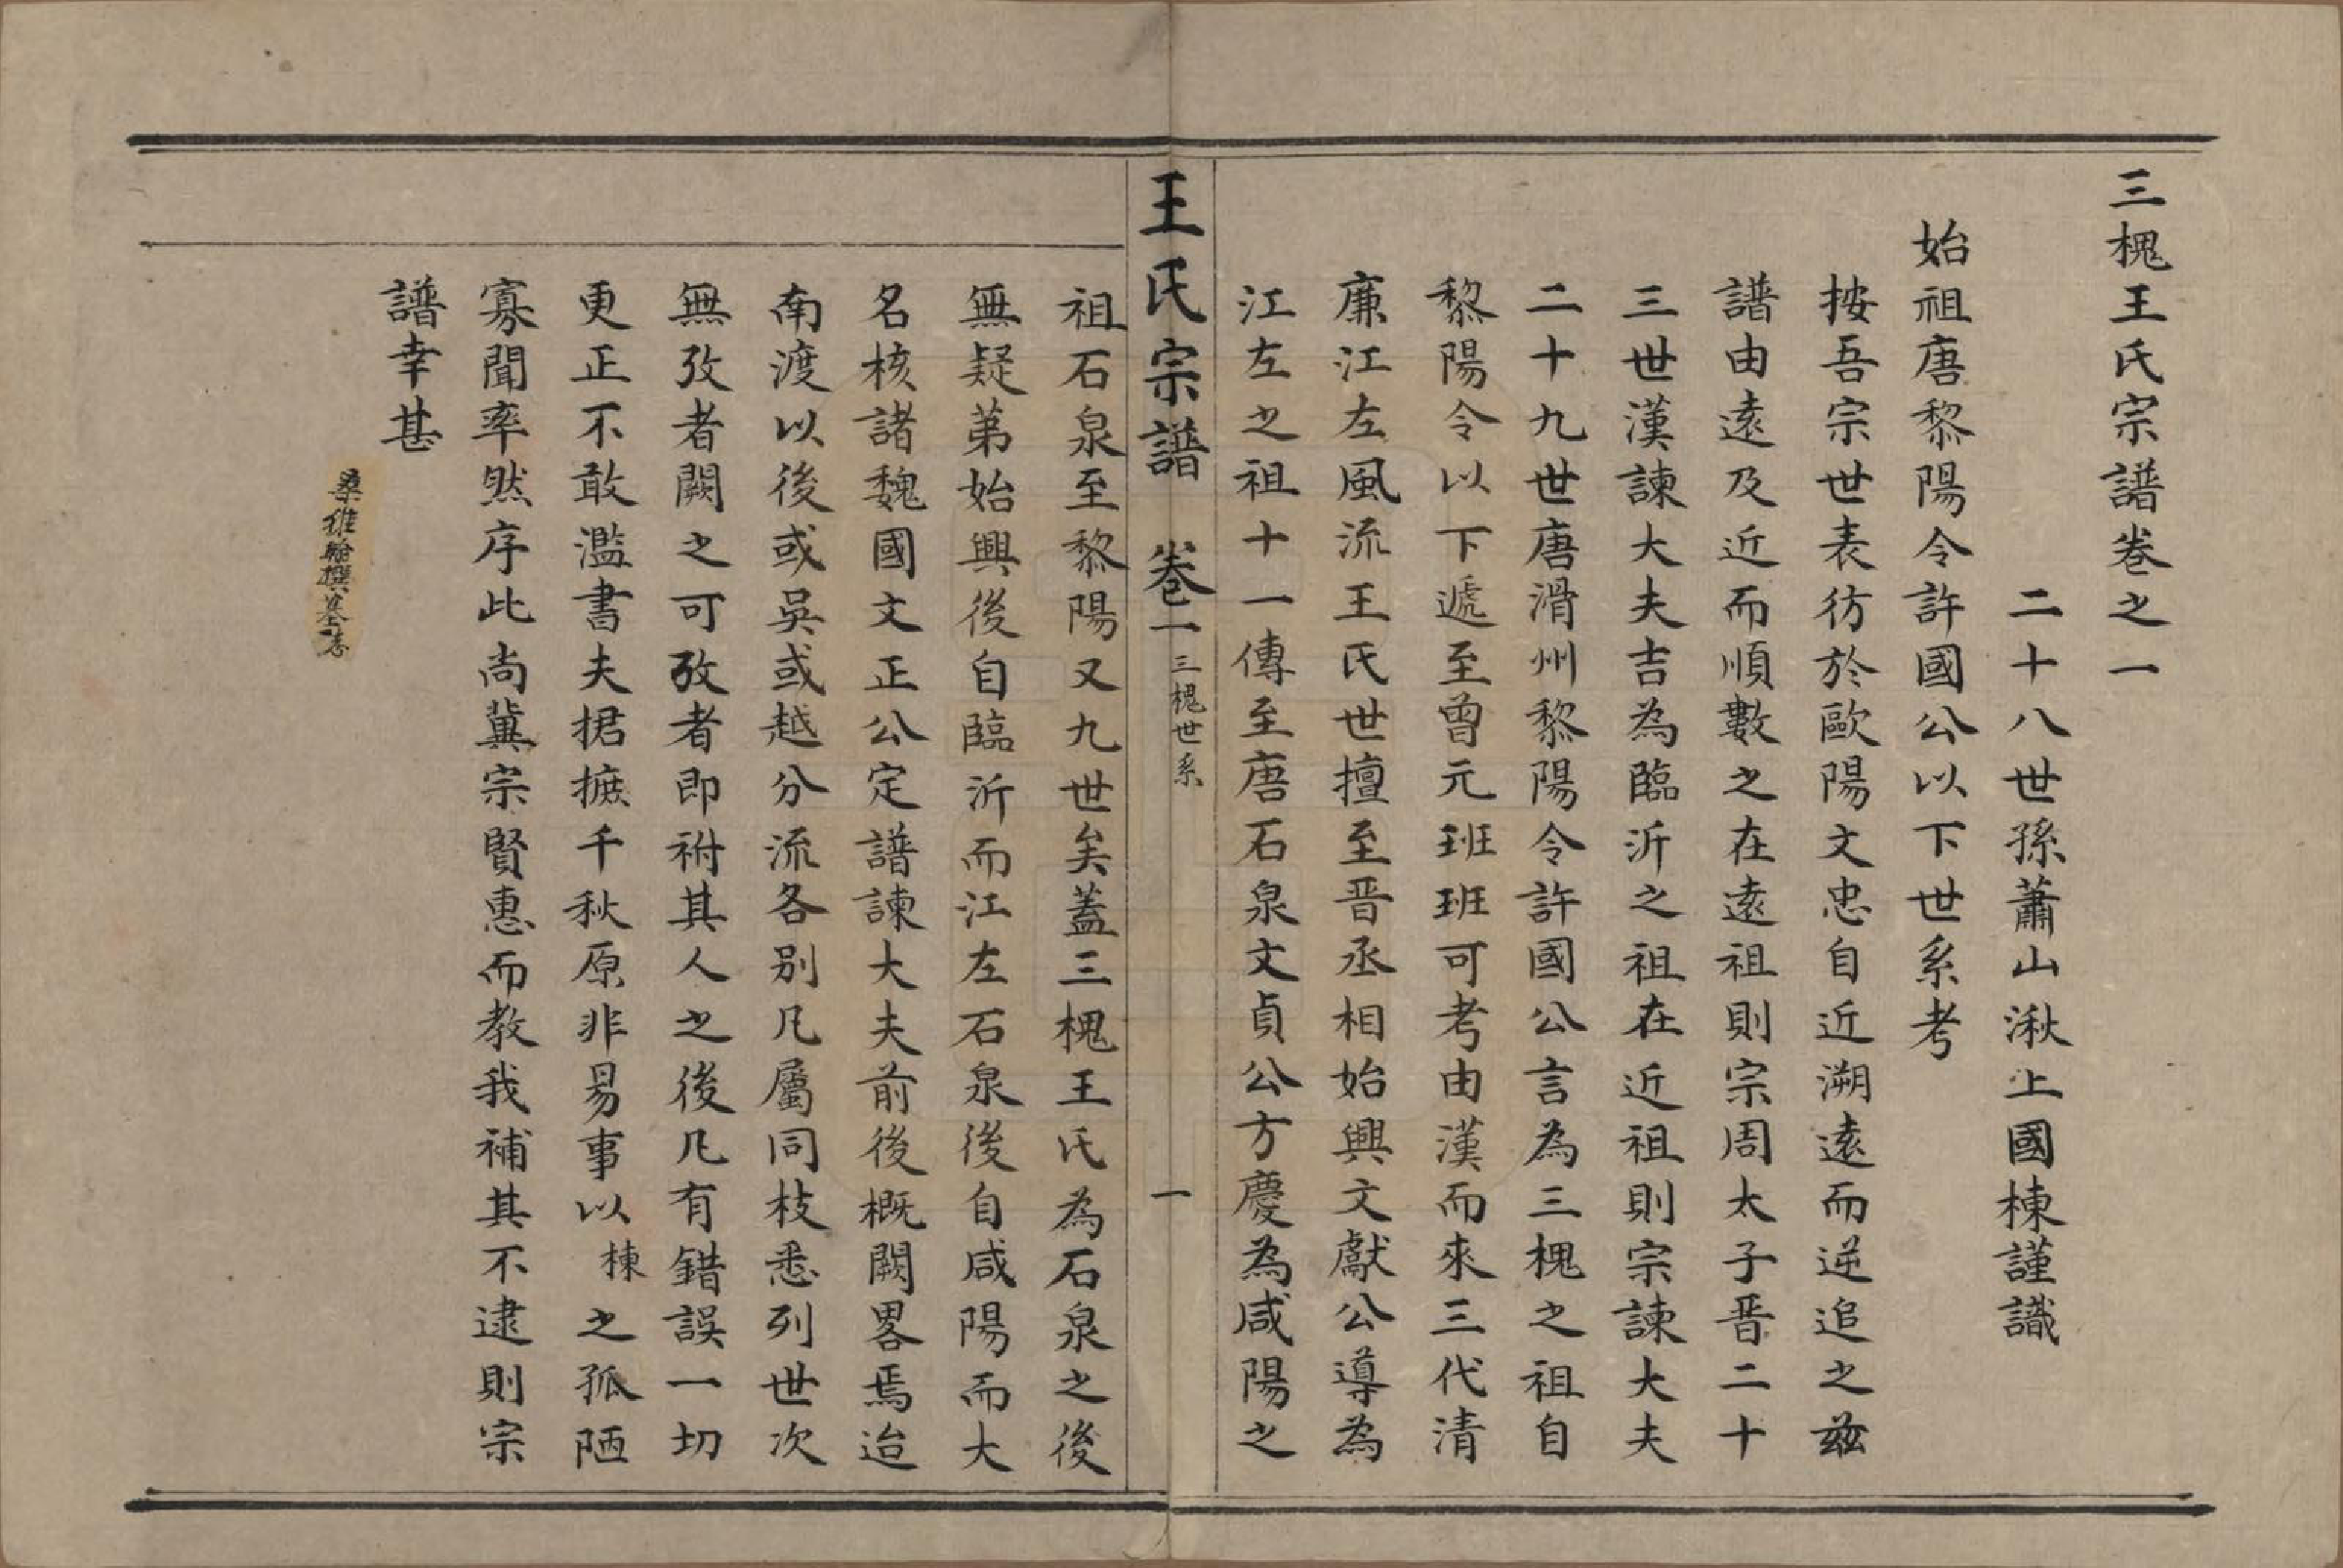 三槐王氏宗譜卷之一
二十八世孫蕭山湫上國棟謹識
始祖唐黎陽令許國公以下世系考
按吾宗世表彷於歐陽文忠自近溯遠而逆追之茲
譜由遠及近而順數之在遠祖則宗周太子晋二十
三世漢諫大夫吉為臨沂之祖在近祖則宗諫大夫
二十九世唐滑州黎陽令許國公言為三槐之祖自
黎陽令以下遞至曾元班班可考由漢而來三代清
廉江左風流王氏世擅至晋丞相始興文獻公導為
江左之祖十一傳至唐石泉文貞公方慶為咸陽之
王氏宗譜 卷一 三槐世系 一
祖石泉至黎陽又九世矣蓋三槐王氏為石泉之後
無疑第始興後自臨沂而江左石泉後自咸陽而大
名核諸魏國文正公定譜諫大夫前後概闕畧焉迨
南渡以後或吳或越分流各別凡屬同枝悉列世次
無攷者闕之可攷者即祔其人之後凡有錯誤一切
更正不敢濫書夫捃摭千秋原非易事以棟之孤陋
寡聞率然序此尚冀宗賢惠而教我補其不逮則宗
譜幸甚
桑維翰撰墓志